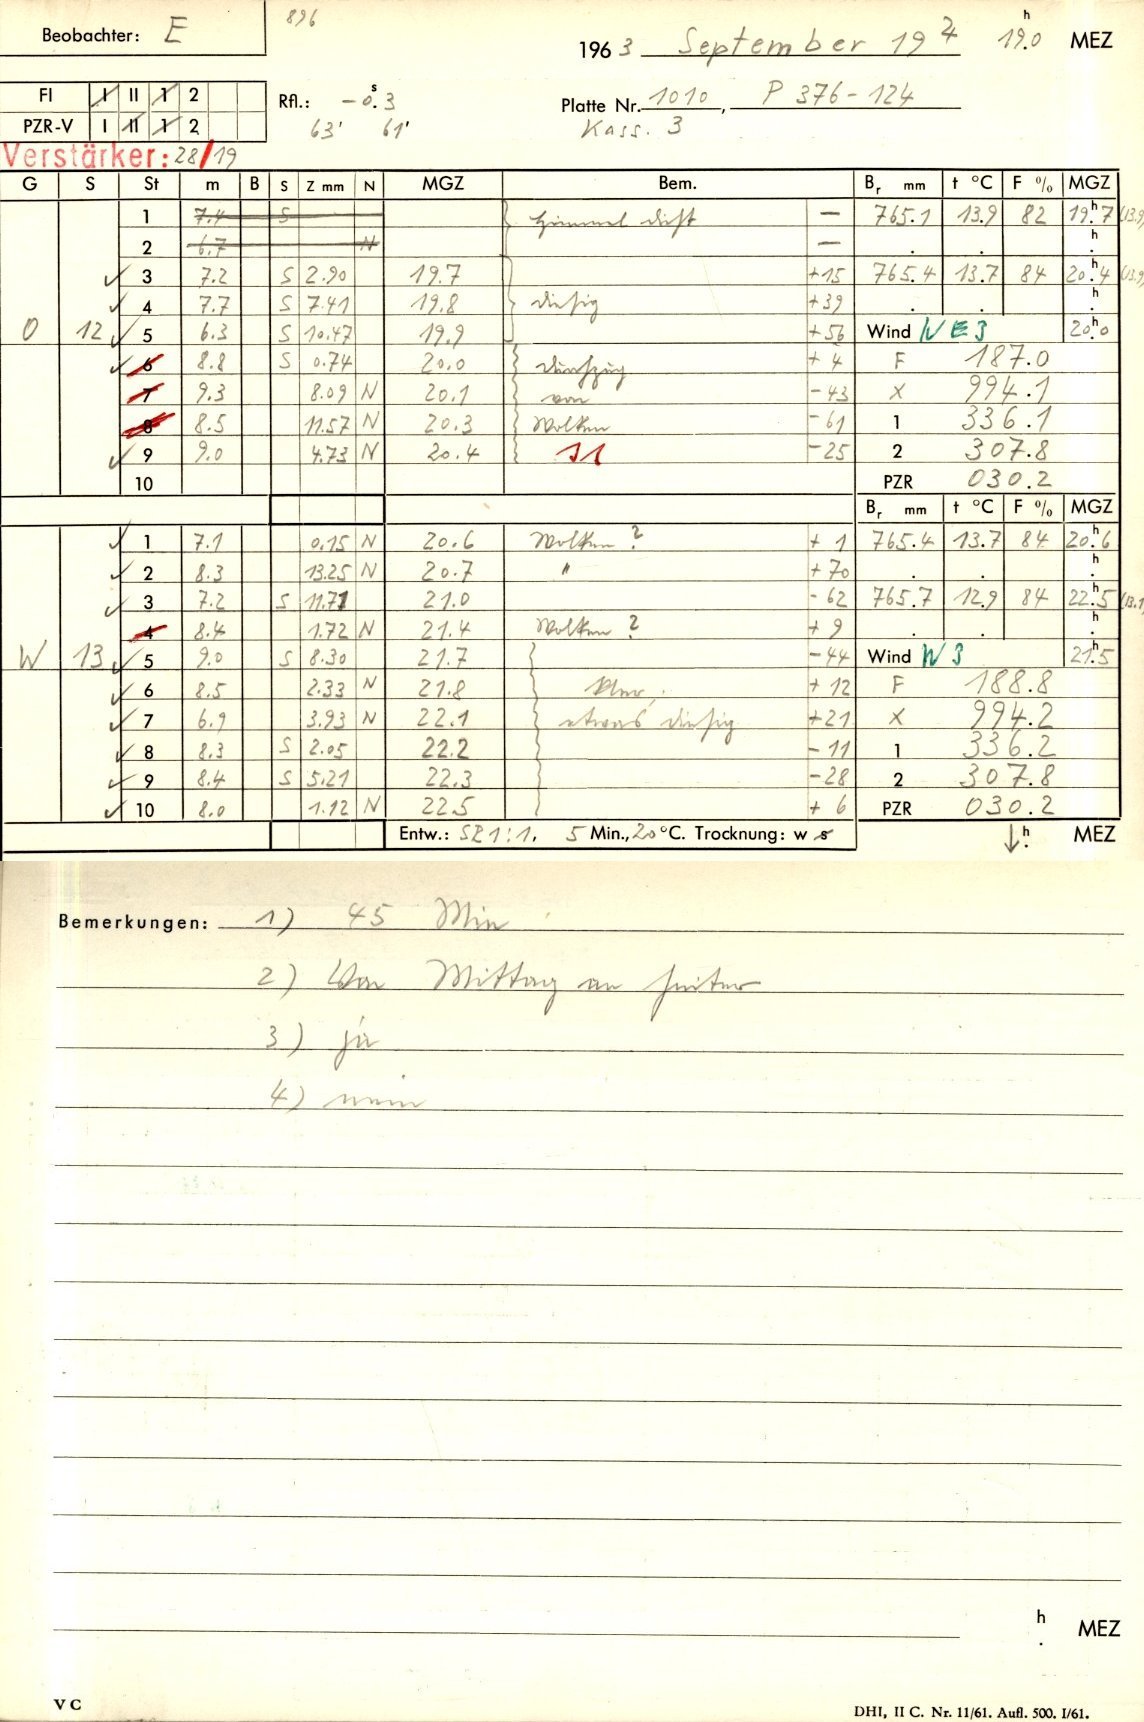 896
Beobachter: E
1963 September 19 19h.0 MEZ
FI I II 1 2
Rfl.: -0s.3
Platte Nr. 1010, P 376-124
PZR-V I II 1 2
63' 61'
Kass. 3
Verstärker: 28/19
G S St m B S Z mm N MGZ Bem. Br mm t °C F % MGZ
1 7.4 S Himmel dicht — 765.1 13.9 82 19h.7 (13.9)
2 6.7 N — . . h.
✓ 3 7.2 S 2.90 19.7 +15 765.4 13.7 84 20h.4 (13.9)
✓ 4 7.7 S 7.41 19.8 diesig +39 . . h.
O 12 ✓ 5 6.3 S 10.47 19.9 +56 Wind NE 3 20h.0
✓ 6 8.8 S 0.74 20.0 +4 F 187.0
7 9.3 8.09 N 20.1 von -43 X 994.1
8 8.5 11.57 N 20.3 Wolken -61 1 336.1
✓ 9 9.0 4.73 N 20.4 -25 2 307.8
10 PZR 030.2
Br mm t °C F % MGZ
✓ 1 7.1 0.15 N 20.6 Wolken ? +1 765.4 13.7 84 20h.6
✓ 2 8.3 13.25 N 20.7 " +70 . . h.
✓ 3 7.2 S 11.71 21.0 -62 765.7 12.9 84 22h.5 (13.1)
4 8.4 1.72 N 21.4 Wolken ? +9 . . h.
W 13 ✓ 5 9.0 S 8.30 21.7 -44 Wind W 3 21h.5
✓ 6 8.5 2.33 N 21.8 klar, +12 F 188.8
✓ 7 6.9 3.93 N 22.1 etwas diesig +21 X 994.2
✓ 8 8.3 S 2.05 22.2 -11 1 336.2
✓ 9 8.4 S 5.21 22.3 -28 2 307.8
✓ 10 8.0 1.12 N 22.5 +6 PZR 030.2
Entw.: 1:1, 5 Min., 20 °C. Trocknung: w s ↓ h. MEZ
Bemerkungen: 1) 45 Min
2) Von Mittag an heiter
3) ja
4) nein
h. MEZ
V C
DHI, II C. Nr. 11/61. Aufl. 500. I/61.